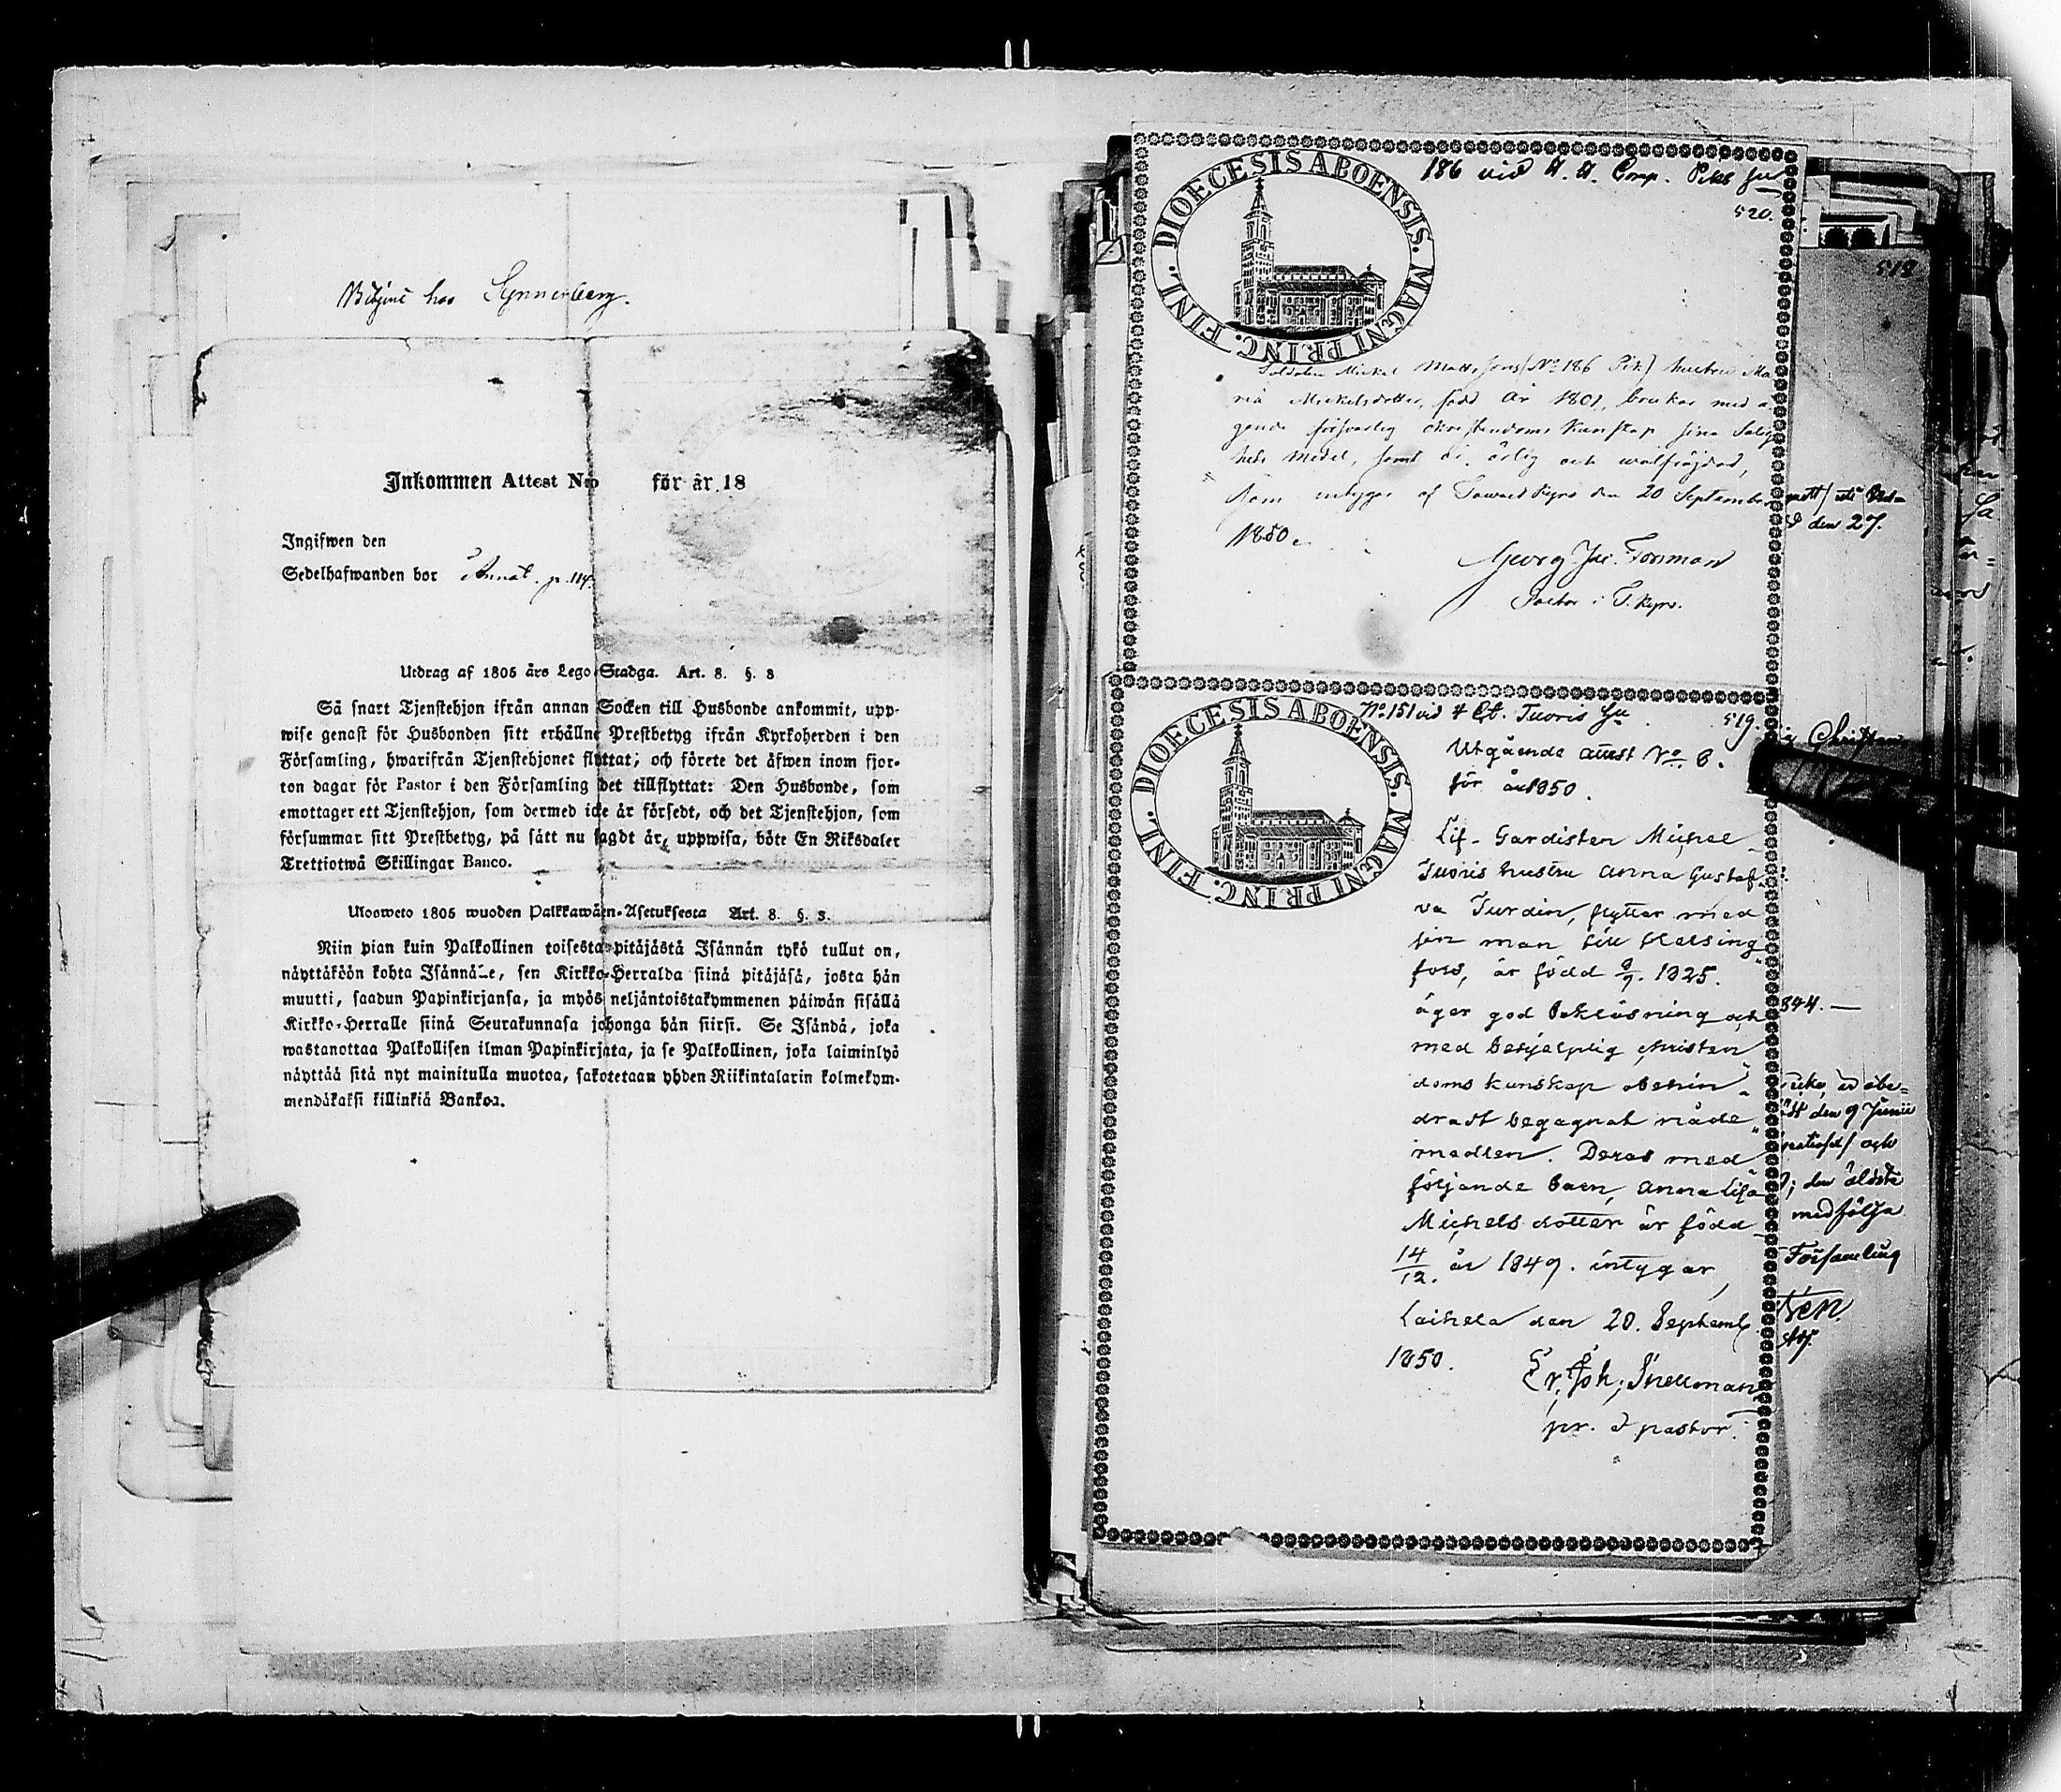 Betjent hos Synnerberg.
Inkommen Attest No för år 18
Ingifwen den
Sedelhafwanden bor Annat. p. 114.
Utdrag af 1805 års Lego-Stadga. Art. 8. §. 3
Så snart Tjenstehjon ifrån annan Socken till Husbonde ankommit, upp-
wise genast för Husbonden sitt erhållne Prestbetyg ifrån Kyrkoherden i den
Församling, hwarifrån Tjenstehjonet flyttat; och förete det äfwen inom fjor-
ton dagar för Pastor i den Församling det tillflyttat: Den Husbonde, som
emottager ett Tjenstehjon, som dermed icke är försedt, och det Tjenstehjon, som
försummar sitt Prestbetyg, på sätt nu sagdt är, uppwisa, böte En Riksdaler
Trettiotwå Skillingar Banco.
Ulosweto 1805 wuoden Palkkawäen-Asetuksesta Art. 8. §. 3.
Niin pian kuin Palkollinen toisesta pitäjästä Isännän tykö tullut on,
näyttäköön kohta Isännälle, sen Kirkko-Herralda siinä pitäjäsä, josta hän
muutti, saadun Papinkirjansa, ja myös neljäntoistakymmenen päiwän sisällä
Kirkko-Herralle siinä Seurakunnasa johonga hän siirsi. Se Isändä, joka
wastanottaa Palkollisen ilman Papinkirjata, ja se Palkollinen, joka laiminlyö
näyttää sitä nyt mainitulla muotoa, sakotetaan yhden Riikintalarin kolmekym-
mendäkaksi killinkiä Bankoa.
DIOECESIS ABOENSIS. MAGNI PRINC. FINL.
186 vid A. A. Comp.
520.
518
Soldaten Mickel Matts sons (No 186 Pik) hustru Ma
ria Mickelsdotter, född år 1801, brukar med ä
gande försvarlig christendoms kunskap sina Salig
hets medel, samt är ärlig och wälfräjdad,
som intygas af Tawastkyro den 20 September
1850.
Georg Jac. Forsman
Pastor i T. kyro.
den 27.
DIOECESIS ABOENSIS. MAGNI PRINC. FINL.
No 151 vid 4 Tuoris hu
519.
Utgående attest No 6.
för år 1850.
Lif-Gardisten Michel
Tuoris hustru Anna Gustaf
va Turdin, flyttar med
sin man till Helsing
fors, är född 8/9. 1825.
äger god bokläsning och
med behjelplig christen
doms kunskap obehin
dradt begagnat nåde
medlen. Deras med
följande barn, Anna Lisa
Michels dotter är född
14/12. år 1849. intygar,
Laihela den 20. Septemb
1850.
Er. Joh; Snellman
pr. & pastor.
Christen
844. —
den 9 Junii
och
den äldste
medfölja
Församling